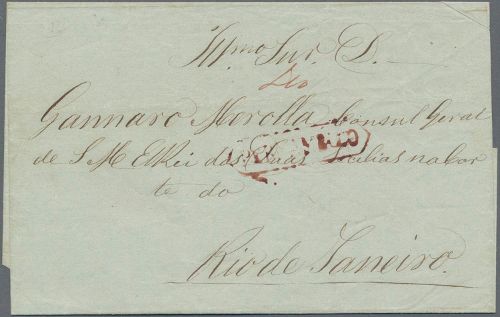 Illmo Snr. D.
Gannaro Morolla Consul Geral
de S M ElRei das Duas Sicilias na Cor
te do
Rio de Janeiro.